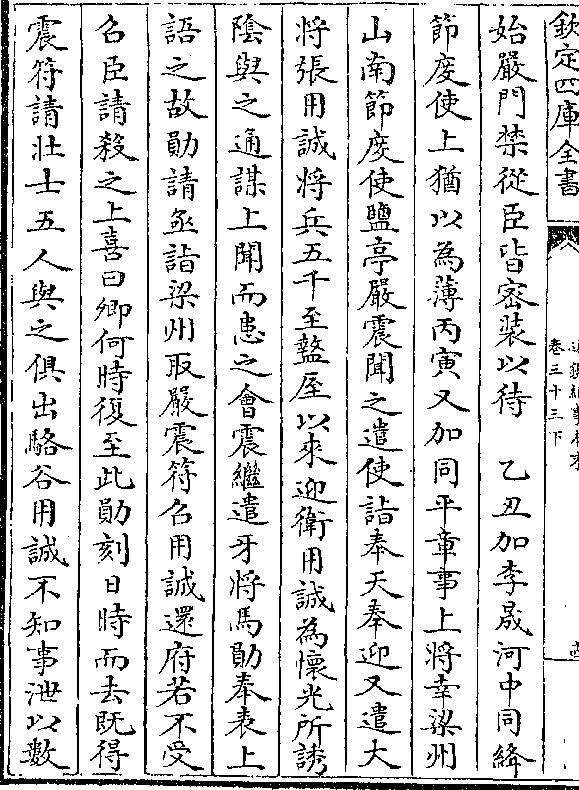 欽定四庫全書
卷三十三下
始嚴門禁從臣皆宻装以待　乙丑加李晟河中同絳
節度使上猶以為薄丙寅又加同平章事上將幸梁州
山南節度使鹽亭嚴震聞之遣使詣奉天奉迎又遣大
將張用誠将兵五千至盩厔以來迎衛用誠為懷光所誘
隂與之通謀上聞而患之會震繼遣牙將馬勛奉表上
語之故勛請亟詣梁州取嚴震符召用誠還府若不受
召臣請殺之上喜曰卿何時復至此勛刻日時而去既得
震符請壮士五人與之俱出駱谷用誠不知事泄以數